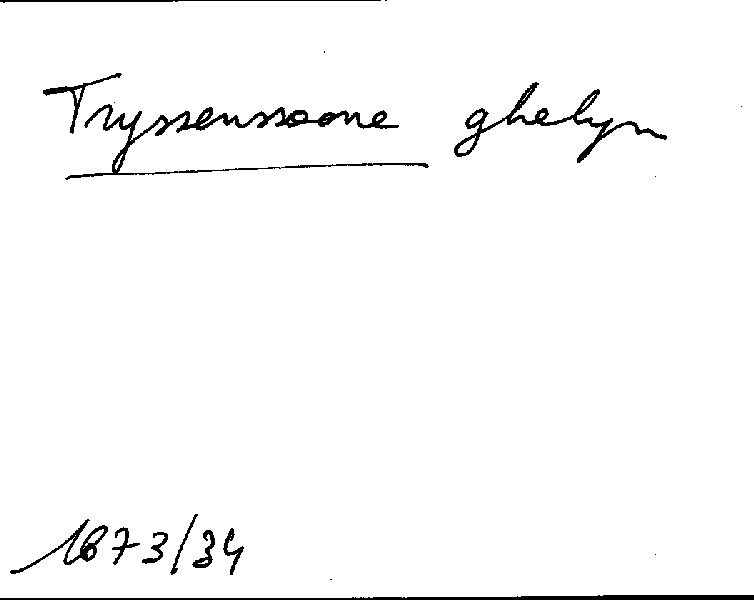 Tryssenssoone ghelyn
1673/34